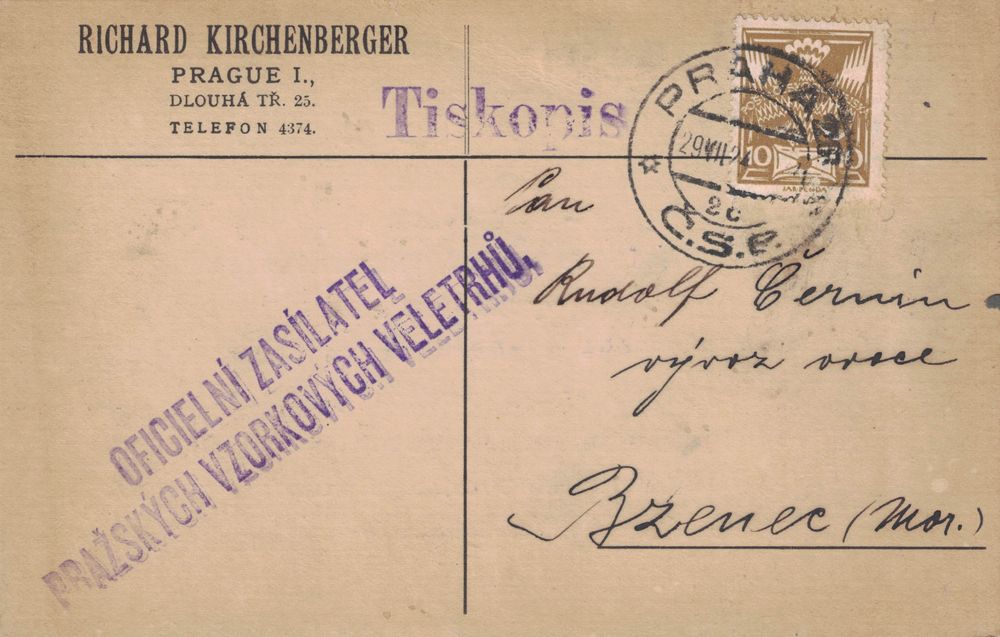 RICHARD KIRCHENBERGER
PRAGUE I.,
DLOUHÁ TŘ. 25.
TELEFON 4374.
Tiskopis
PRAHA
29 VII 24
Č.S.P.
10 10
OFICIELNÍ ZASÍLATEL
PRAŽSKÝCH VZORKOVÝCH VELETRHŮ.
Pan
Rudolf Černín
vývoz ovoce
Bzenec (Mor.)